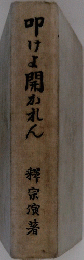 叩けよ開かれん
釋宗演著